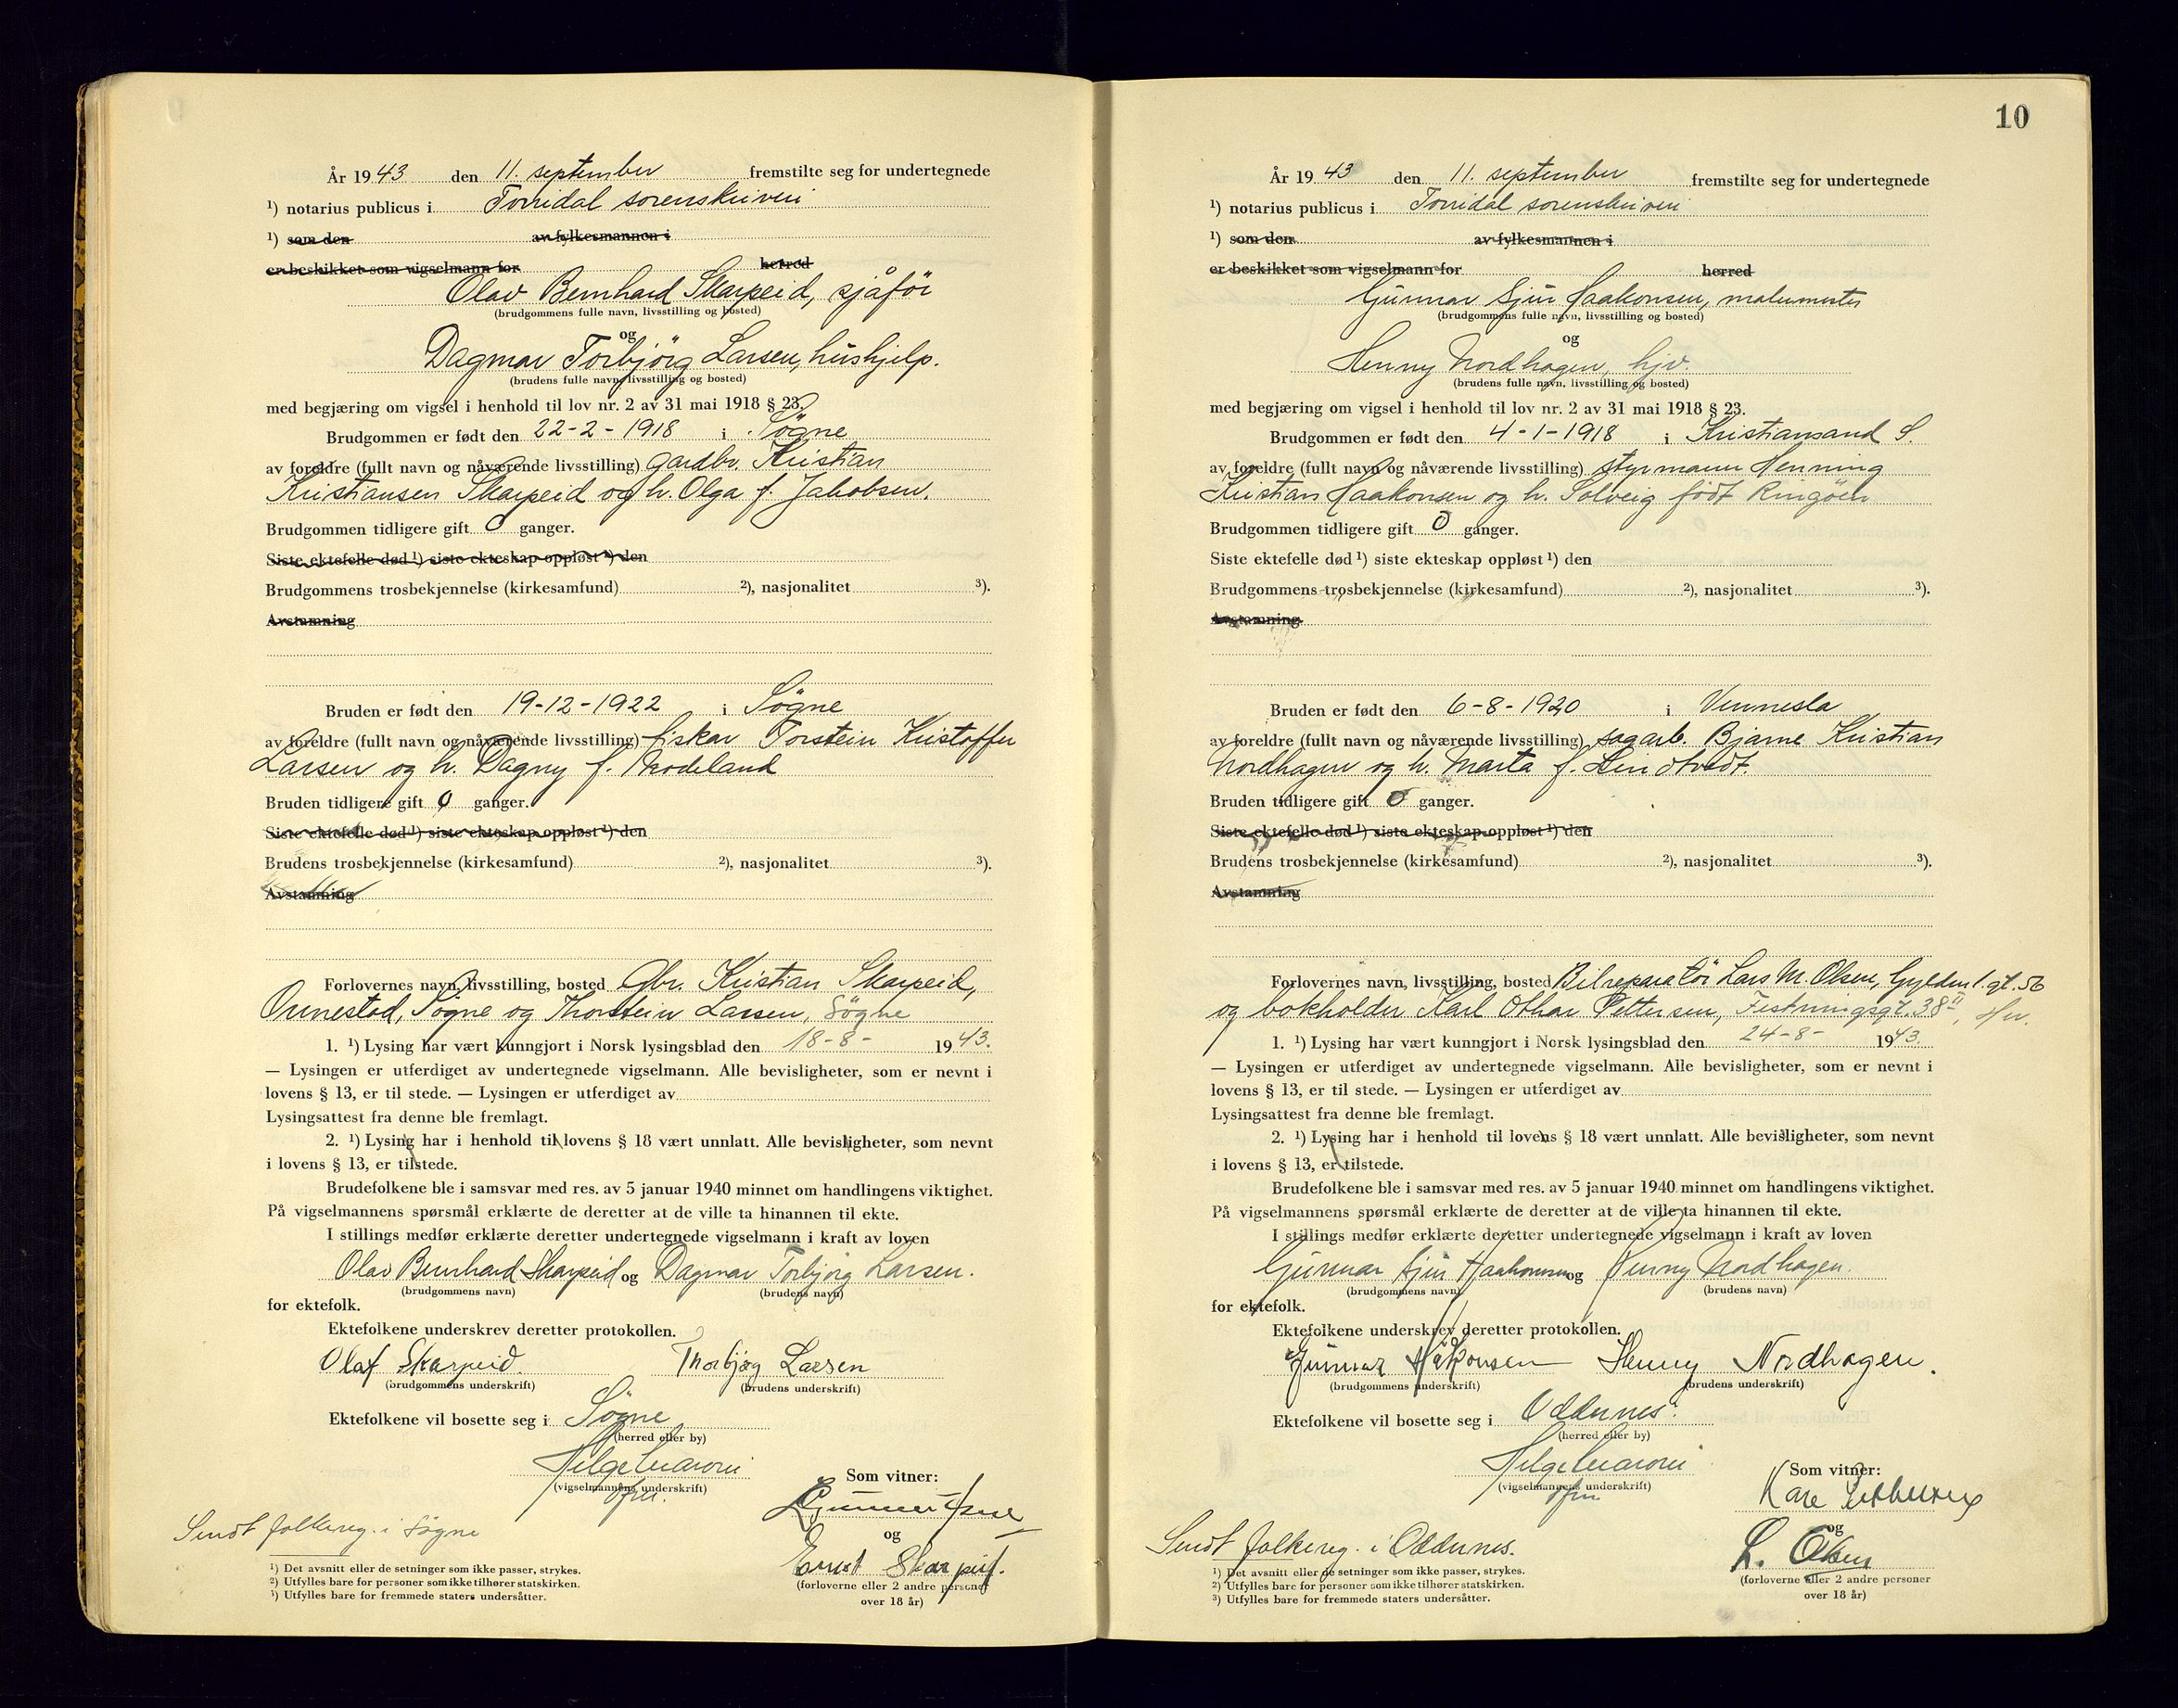 År 1943 den 11. september fremstilte seg for undertegnede
¹) notarius publicus i Torridal sorenskriveri
¹) som den av fylkesmannen i
er beskikket som vigselmann for herred
Olav Bernhard Skarpeid, sjåför
(brudgommens fulle navn, livsstilling og bosted)
og
Dagmar Torbjörg Larsen, hushjelp.
(brudens fulle navn, livsstilling og bosted)
med begjæring om vigsel i henhold til lov nr. 2 av 31 mai 1918 § 23.
Brudgommen er født den 22-2-1918 i Sögne
av foreldre (fullt navn og nåværende livsstilling) gardbr. Kristian
Kristiansen Skarpeid og h. Olga f. Jakobsen.
Brudgommen tidligere gift 0 ganger.
Siste ektefelle død ¹) siste ekteskap oppløst ¹) den
Brudgommens trosbekjennelse (kirkesamfund) ²), nasjonalitet ³).
Avstamning
Bruden er født den 19-12-1922 i Sögne
av foreldre (fullt navn og nåværende livsstilling) fisker Torstein Kristoffer
Larsen og h. Dagny f. Modeland
Bruden tidligere gift 0 ganger.
Siste ektefelle død ¹) siste ekteskap oppløst ¹) den
Brudens trosbekjennelse (kirkesamfund) ²), nasjonalitet ³).
Avstamning
Forlovernes navn, livsstilling, bosted Gbr. Kristian Skarpeid,
Ormestad, Sögne og Thorstein Larsen, Sögne
1. ¹) Lysing har vært kunngjort i Norsk lysingsblad den 18-8- 1943.
— Lysingen er utferdiget av undertegnede vigselmann. Alle bevisligheter, som er nevnt i
lovens § 13, er til stede. — Lysingen er utferdiget av
Lysingsattest fra denne ble fremlagt.
2. ¹) Lysing har i henhold til lovens § 18 vært unnlatt. Alle bevisligheter, som nevnt
i lovens § 13, er tilstede.
Brudefolkene ble i samsvar med res. av 5 januar 1940 minnet om handlingens viktighet.
På vigselmannens spørsmål erklærte de deretter at de ville ta hinannen til ekte.
I stillings medfør erklærte deretter undertegnede vigselmann i kraft av loven
Olav Bernhard Skarpeid og Dagmar Torbjörg Larsen.
(brudgommens navn) (brudens navn)
for ektefolk.
Ektefolkene underskrev deretter protokollen.
Olaf Skarpeid. Thorbjørg Larsen
(brudgommens underskrift) (brudens underskrift)
Ektefolkene vil bosette seg i Sögne
(herred eller by)
Helge
(vigselmannens underskrift)
Som vitner:
Gunnar
og
Ernst Skarpeid.
(forloverne eller 2 andre personer
over 18 år)
Sendt folkereg. i Sögne
¹) Det avsnitt eller de setninger som ikke passer, strykes.
²) Utfylles bare for personer som ikke tilhører statskirken.
³) Utfylles bare for fremmede staters undersåtter.
10
År 1943 den 11. september fremstilte seg for undertegnede
¹) notarius publicus i Torridal sorenskriveri
¹) som den av fylkesmannen i
er beskikket som vigselmann for herred
Gunnar Sjur Haakonsen, malermester
(brudgommens fulle navn, livsstilling og bosted)
og
Henny Nordhagen, hjv.
(brudens fulle navn, livsstilling og bosted)
med begjæring om vigsel i henhold til lov nr. 2 av 31 mai 1918 § 23.
Brudgommen er født den 4-1-1918 i Kristiansand S.
av foreldre (fullt navn og nåværende livsstilling) styrmann Henning
Kristian Haakonsen og h. Solveig født Ringöen
Brudgommen tidligere gift 0 ganger.
Siste ektefelle død ¹) siste ekteskap oppløst ¹) den
Brudgommens trosbekjennelse (kirkesamfund) ²), nasjonalitet ³).
Avstamning
Bruden er født den 6-8-1920 i Vennesla
av foreldre (fullt navn og nåværende livsstilling) sagarb. Bjarne Kristian
Nordhagen og h. Marta f. Lindtvedt.
Bruden tidligere gift 0 ganger.
Siste ektefelle død ¹) siste ekteskap oppløst ¹) den
Brudens trosbekjennelse (kirkesamfund) ²), nasjonalitet ³).
Avstamning
Forlovernes navn, livsstilling, bosted Bilreparatör Lars M. Olsen, Gyldenl.gt. 56
og bokholder Karl Othar Pettersen, Festningsgt. 38 II,
1. ¹) Lysing har vært kunngjort i Norsk lysingsblad den 24-8- 1943.
— Lysingen er utferdiget av undertegnede vigselmann. Alle bevisligheter, som er nevnt i
lovens § 13, er til stede. — Lysingen er utferdiget av
Lysingsattest fra denne ble fremlagt.
2. ¹) Lysing har i henhold til lovens § 18 vært unnlatt. Alle bevisligheter, som nevnt
i lovens § 13, er tilstede.
Brudefolkene ble i samsvar med res. av 5 januar 1940 minnet om handlingens viktighet.
På vigselmannens spørsmål erklærte de deretter at de ville ta hinannen til ekte.
I stillings medfør erklærte deretter undertegnede vigselmann i kraft av loven
Gunnar Sjur Haakonsen og Henny Nordhagen.
(brudgommens navn) (brudens navn)
for ektefolk.
Ektefolkene underskrev deretter protokollen.
Gunnar Håkonsen Henny Nordhagen.
(brudgommens underskrift) (brudens underskrift)
Ektefolkene vil bosette seg i Oddernes.
(herred eller by)
Helge
(vigselmannens underskrift)
Som vitner:
Kåre
og
L. Olsen
(forloverne eller 2 andre personer
over 18 år)
Sendt folkereg. i Oddernes.
¹) Det avsnitt eller de setninger som ikke passer, strykes.
²) Utfylles bare for personer som ikke tilhører statskirken.
³) Utfylles bare for fremmede staters undersåtter.